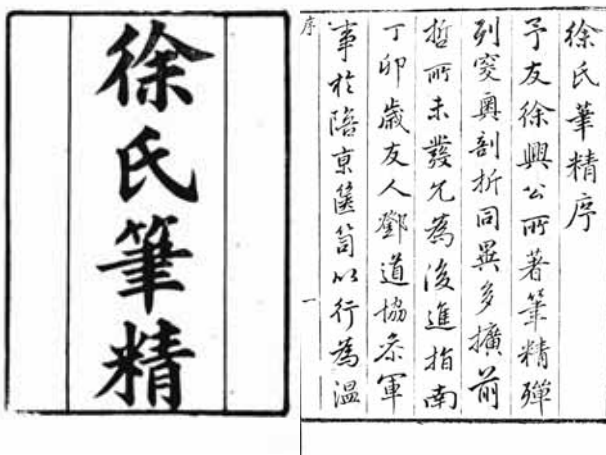 徐氏筆精
徐氏筆精序
予友徐興公所著筆精殫
列窔奧剖折同異多擴前
哲所未發允為後進指南
丁卯歲友人鄧道協叅軍
事於陪京篋笥以行為溫
序
一